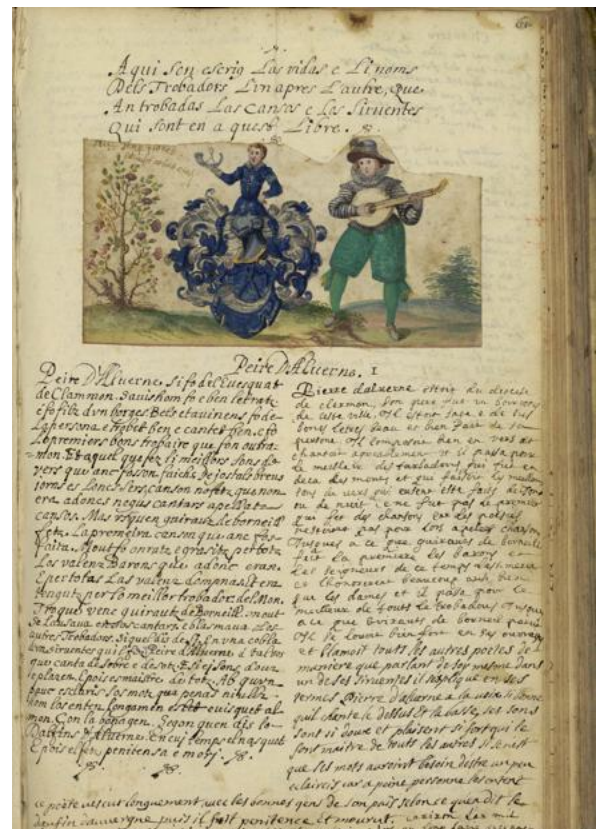 Aqui son escrig Las vidas e Li noms
Dels Trobadors L'un apres L'autre, que
An trobadas Las Cansos e Los Siruentes
Qui sont en a quest Libre.
Peire D'Aluerne. 1
Peire D'Aluerne si fo del Euesquat
de Clarmon. Sauis hom fo e ben letratz
e fo filz d'un borges. Bels et auinens fo de
La persona e trobet ben e cantet ben, e fo
Lo premiers bons trobaire que fon outra-
mon. Et aquel que fez li meillors sons de
vers que anc fosson faich. De jostals breus
jorns es Loncs sers, canson no fetz que non
era adones negus cantars apellatz
cansos. Mas vers quen guirautz de borneill
fetz La premeira canson que anc fos
faita. Mout fo onratz e grasitz per totz
Los valenz Barons que adonc eran.
E per totas Las valenz dompnas. Et era
tengutz per lo meillor trobador del Mon
Tro que venc guirautz de Borneill. mout
se Lausaua en sos cantars e blasmaua Los
autres Trobadors. Si que dis de si En vna cobla
d'un siruentes qu'il fez Peire D'Aluerne a tal votz
que canta de sobre e de sotz. E siei sons douz
e plazen. E pois es maistre de totz. Ab qu'un
pauc esclaris sos motz qua penas nuillz
hom los enten. Longamen estet e uisquet al
mon. Con la bona gen. Segon quen dis lo
Dalfins d'Aluerne. En cui temps el nasquet
E pois el fez penitensa e mori.
Pierre d'aluerne estoit du diocese
de clermon, son pere fut un bourgois
de ceste ville. Il estoit sage e de tres
bones letres beau et bien fait de sa
persone. Il composoit bien en vers et
chantoit agreablement et il passa pour
le meilleur des
deca des monts et qui faisoit les meilleurs
tons de vers qui eussent este faits de jour
ou de nuict. e ne fut pas le premier
qui fit des chansons car les poesies
n'estoient pas pour lors apelees chansons
Jusques a ce que guiraut de borneill
fait la premiere, les barons et
les seigneurs de ce temps l'estimerent
et l'honorerent beaucoup aussi bien
que les dames et il passa pour le
meilleur de touts les trobadours jusqu
a ce que Guiraut de borneil parut
Il se louoit bien fort en ses ouvrages
et blamoit touts les autres poetes de
maniere que parlant de soy mesme dans
un de ses siruentes il s'explique en ses
termes Pierre d'aluerne a la voix si bonne
qu'il chante le dessus et la basse, ses sons
sont si doux et plaisent si fort qu'il
sont maitre de touts les autres si n'est
que ses mots auroient besoin destre un peu
eclaircis car a peine personne les entent
ce poete vescut longuement auec les bonnes gens de son pais selon ce quen dit le
daufin d'auuergne puis il fait penitence et mourut.